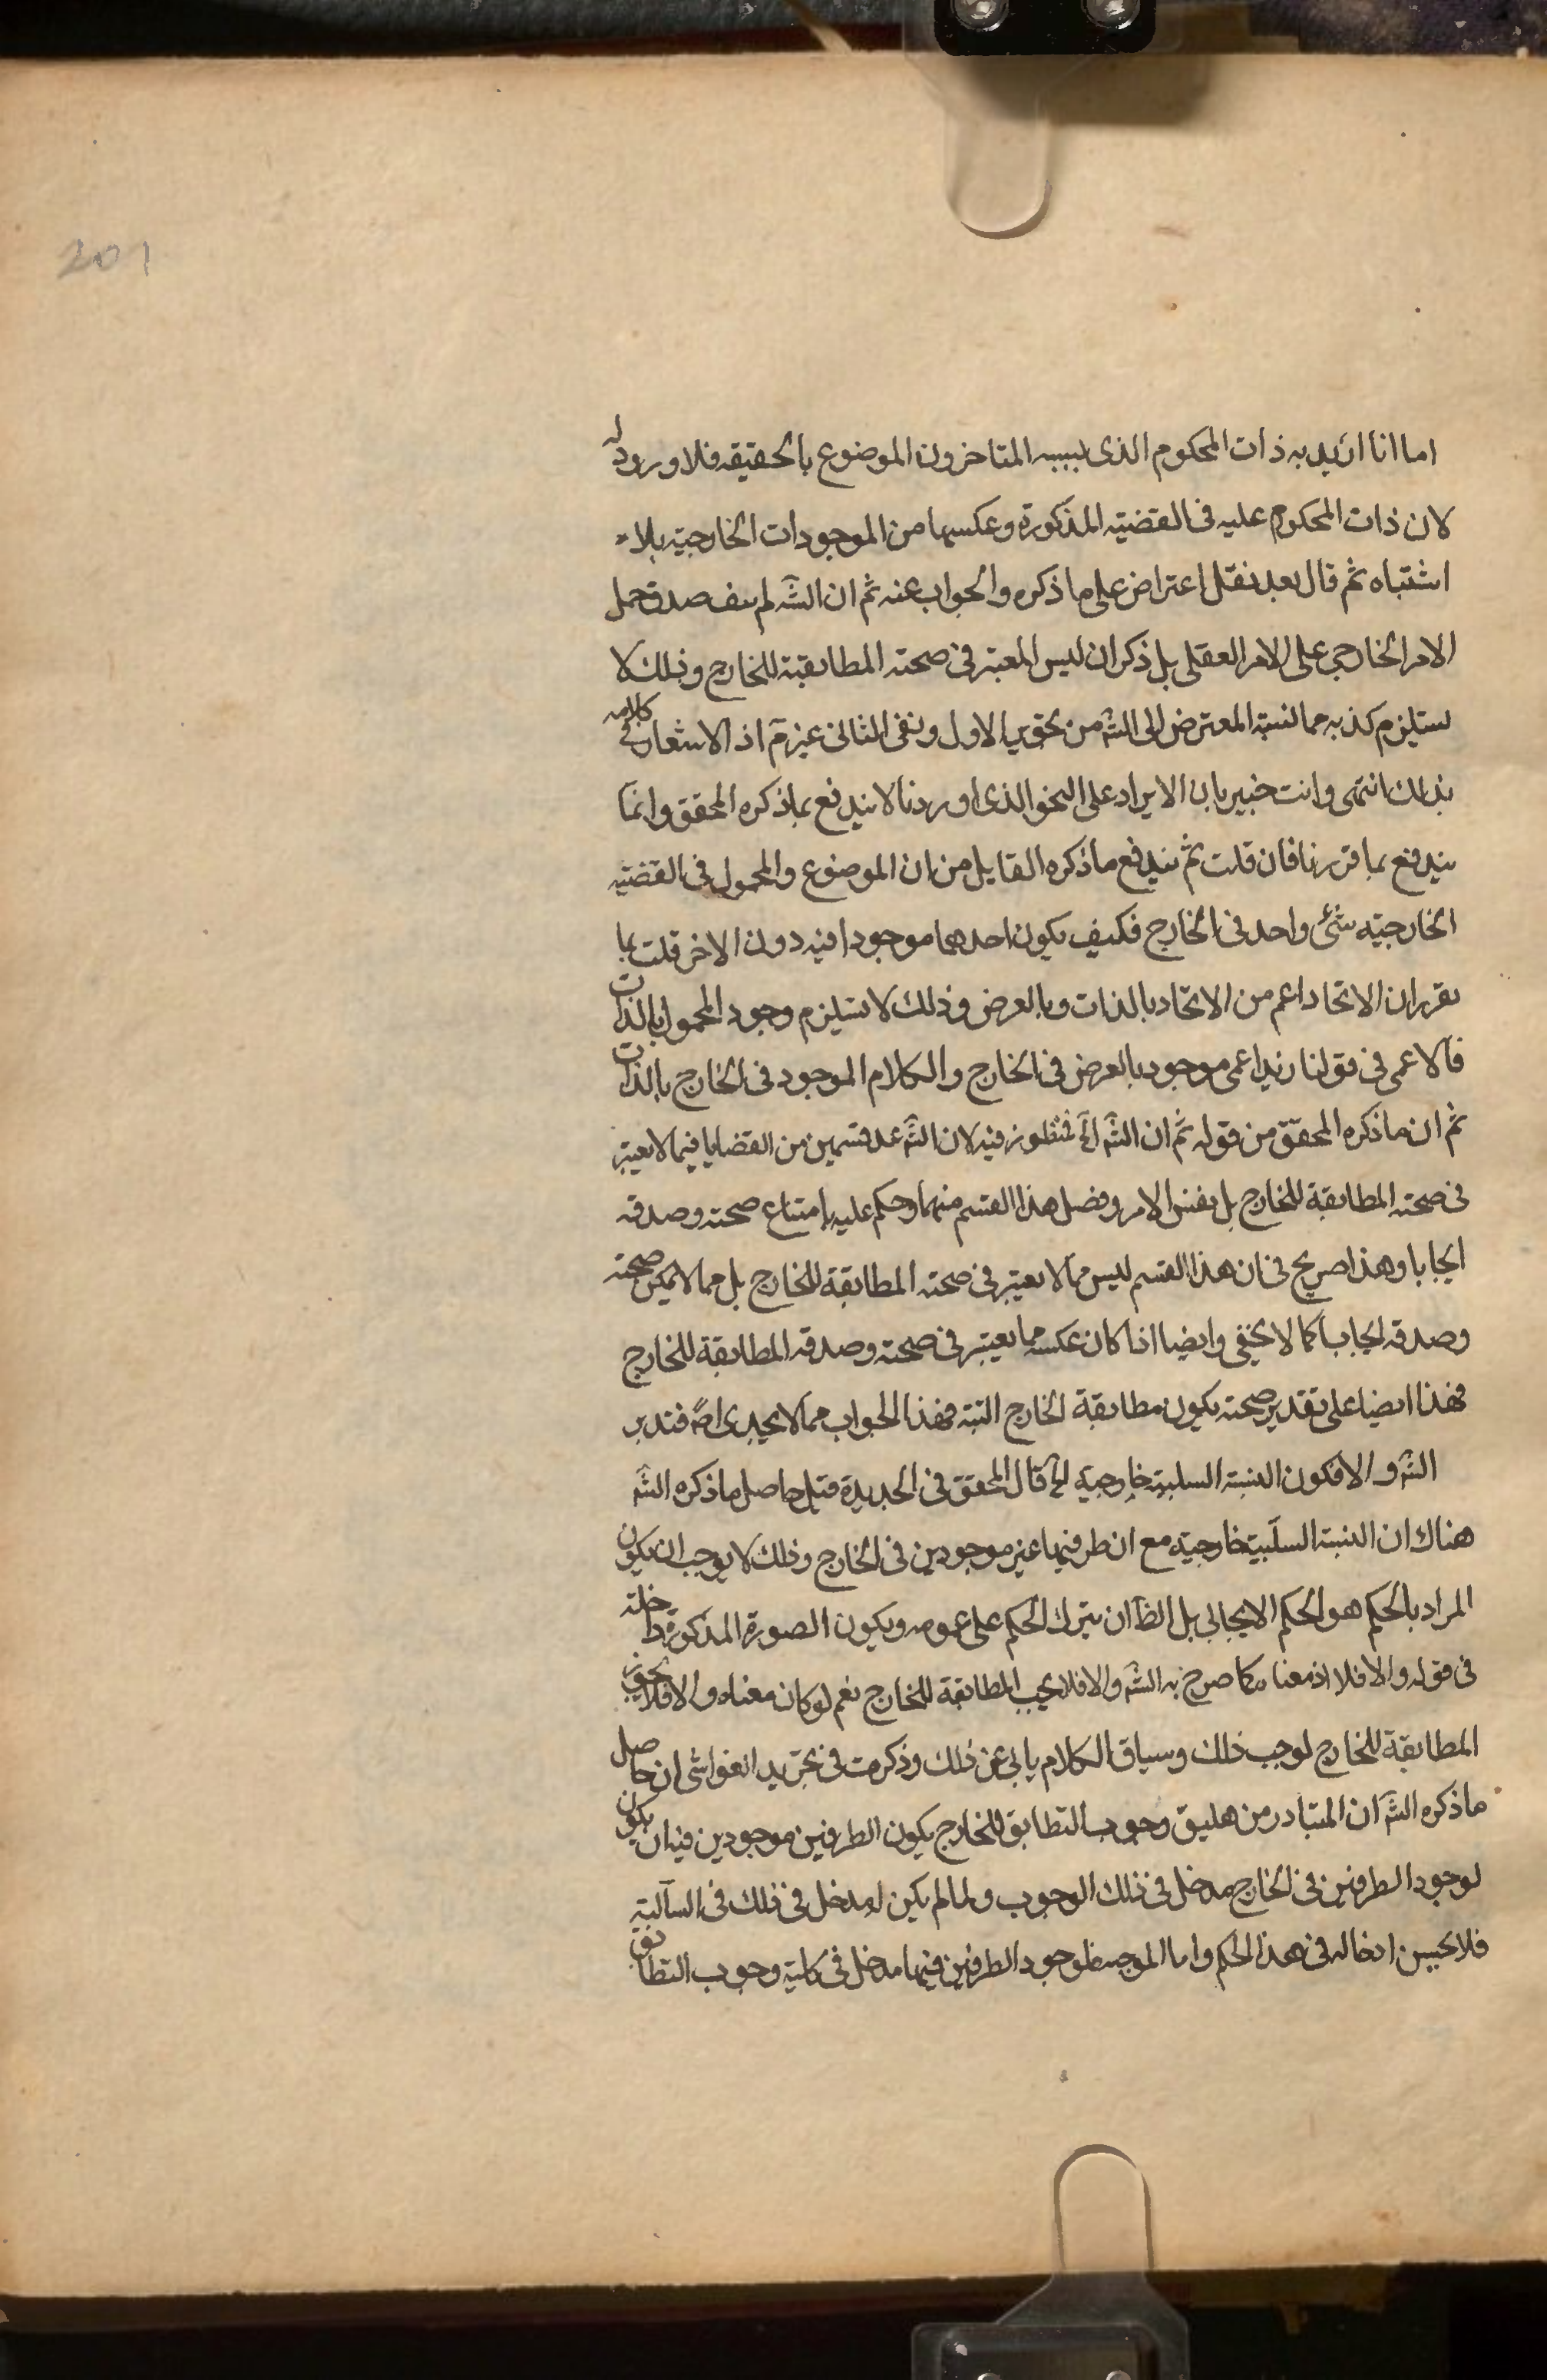 201
اما اذا اريد به ذات المحكوم الذى يسميه المتاخرون الموضوع بالحقيقه فلا ورود له
لان ذات المحكوم عليه فى القضيّه المذكورة وعكسها من الموجودات الخارجيّه بلا
اشتباه ثم قال بعد نقل اعتراض على ما ذكره والجواب عنه ثم ان الشّه لم ينف صدق حمل
الامر الخارجى على الامر العقلى بل ذكر ان ليس المعتبر فى صحته المطابقة للخارج وذلك لا
يستلزم كذبه فما نسبه المعترض الى الشّه من تجويز الاول ونفى الثانى غير مّ اذ لا اشعار فى كلامه
بذلك انتهى وانت خبير بان الايراد على النحو الذى اوردنا لا يندفع بما ذكره المحقق وانمّا
يندفع بما قررنا فان قلت ثم يندفع ما ذكره القايل من ان الموضوع والمحمول فى القضيّه
الخارجيّه شئ واحد فى الخارج فكيف يكون احدهما موجودا فيه دون الاخر قلت بما
تقرر ان الاتحاد اعم من الاتحاد بالذات وبالعرض وذلك لا يستلزم وجود المحمول بالذات
فالاعمى فى قولنا زيد اعمى موجود بالعرض فى الخارج والكلام الموجود فى الخارج بالذات
ثم ان ما ذكره المحقّق من قوله ثم ان الشّه الخ فمنظور فيه لان الشّه عد قسمين من القضايا فيما لا يعتبر
فى صحته المطابقة للخارج بل نفس الامر وفصل هذا القسم منهما وحكم عليه بامتناع صحته وصدقه
ايجابا وهذا صريح فى ان هذا القسم ليس مما لا يعتبر فى صحته المطابقة للخارج بل مما لا يمكن صحته
وصدقه ايجابا كما لا يخفى وايضا اذا كان عكسه مما يعتبر فى صحته وصدقه المطابقة للخارج
فهذا ايضا على تقدير صحته يكون مطابقة الخارج البتة فهذا الجواب مما لا يجدى اصّه فتدبر
الشّه والا فكون النسبة السلبية خارجيّه الخ قال المحقق فى الجديدة قيل حاصل ما ذكره الشّه
هناك ان النسبة السلبيّة خارجيّه مع ان طرفيها غير موجودين فى الخارج وذلك لا يوجب ان يكون
المراد بالحكم هو الحكم الايجابى بل الظّ ان يترك الحكم على عمومه ويكون الصورة المذكورة داخلة
فى قوله والا فلا اذ معناه كما صرح به الشّه والا فلا يجب المطابقة للخارج نعم لو كان معناه والا فلا يجوز
المطابقة للخارج لوجب ذلك وسياق الكلام يابى عن ذلك وذكرت فى تجريد الغواشى ان حاصل
ما ذكره الشّه ان المتبادر من وجوب التطابق للخارج بكون الطرفين موجودين فيه ان يكون
لوجود الطرفين فى الخارج مدخل فى ذلك الوجوب ولما لم يكن له مدخل فى ذلك فى السالبة
فلا يحسن ادخاله فى هذا الحكم واما الموجبة فلوجود الطرفين فيها مدخل فى كلية وجوب التطابق